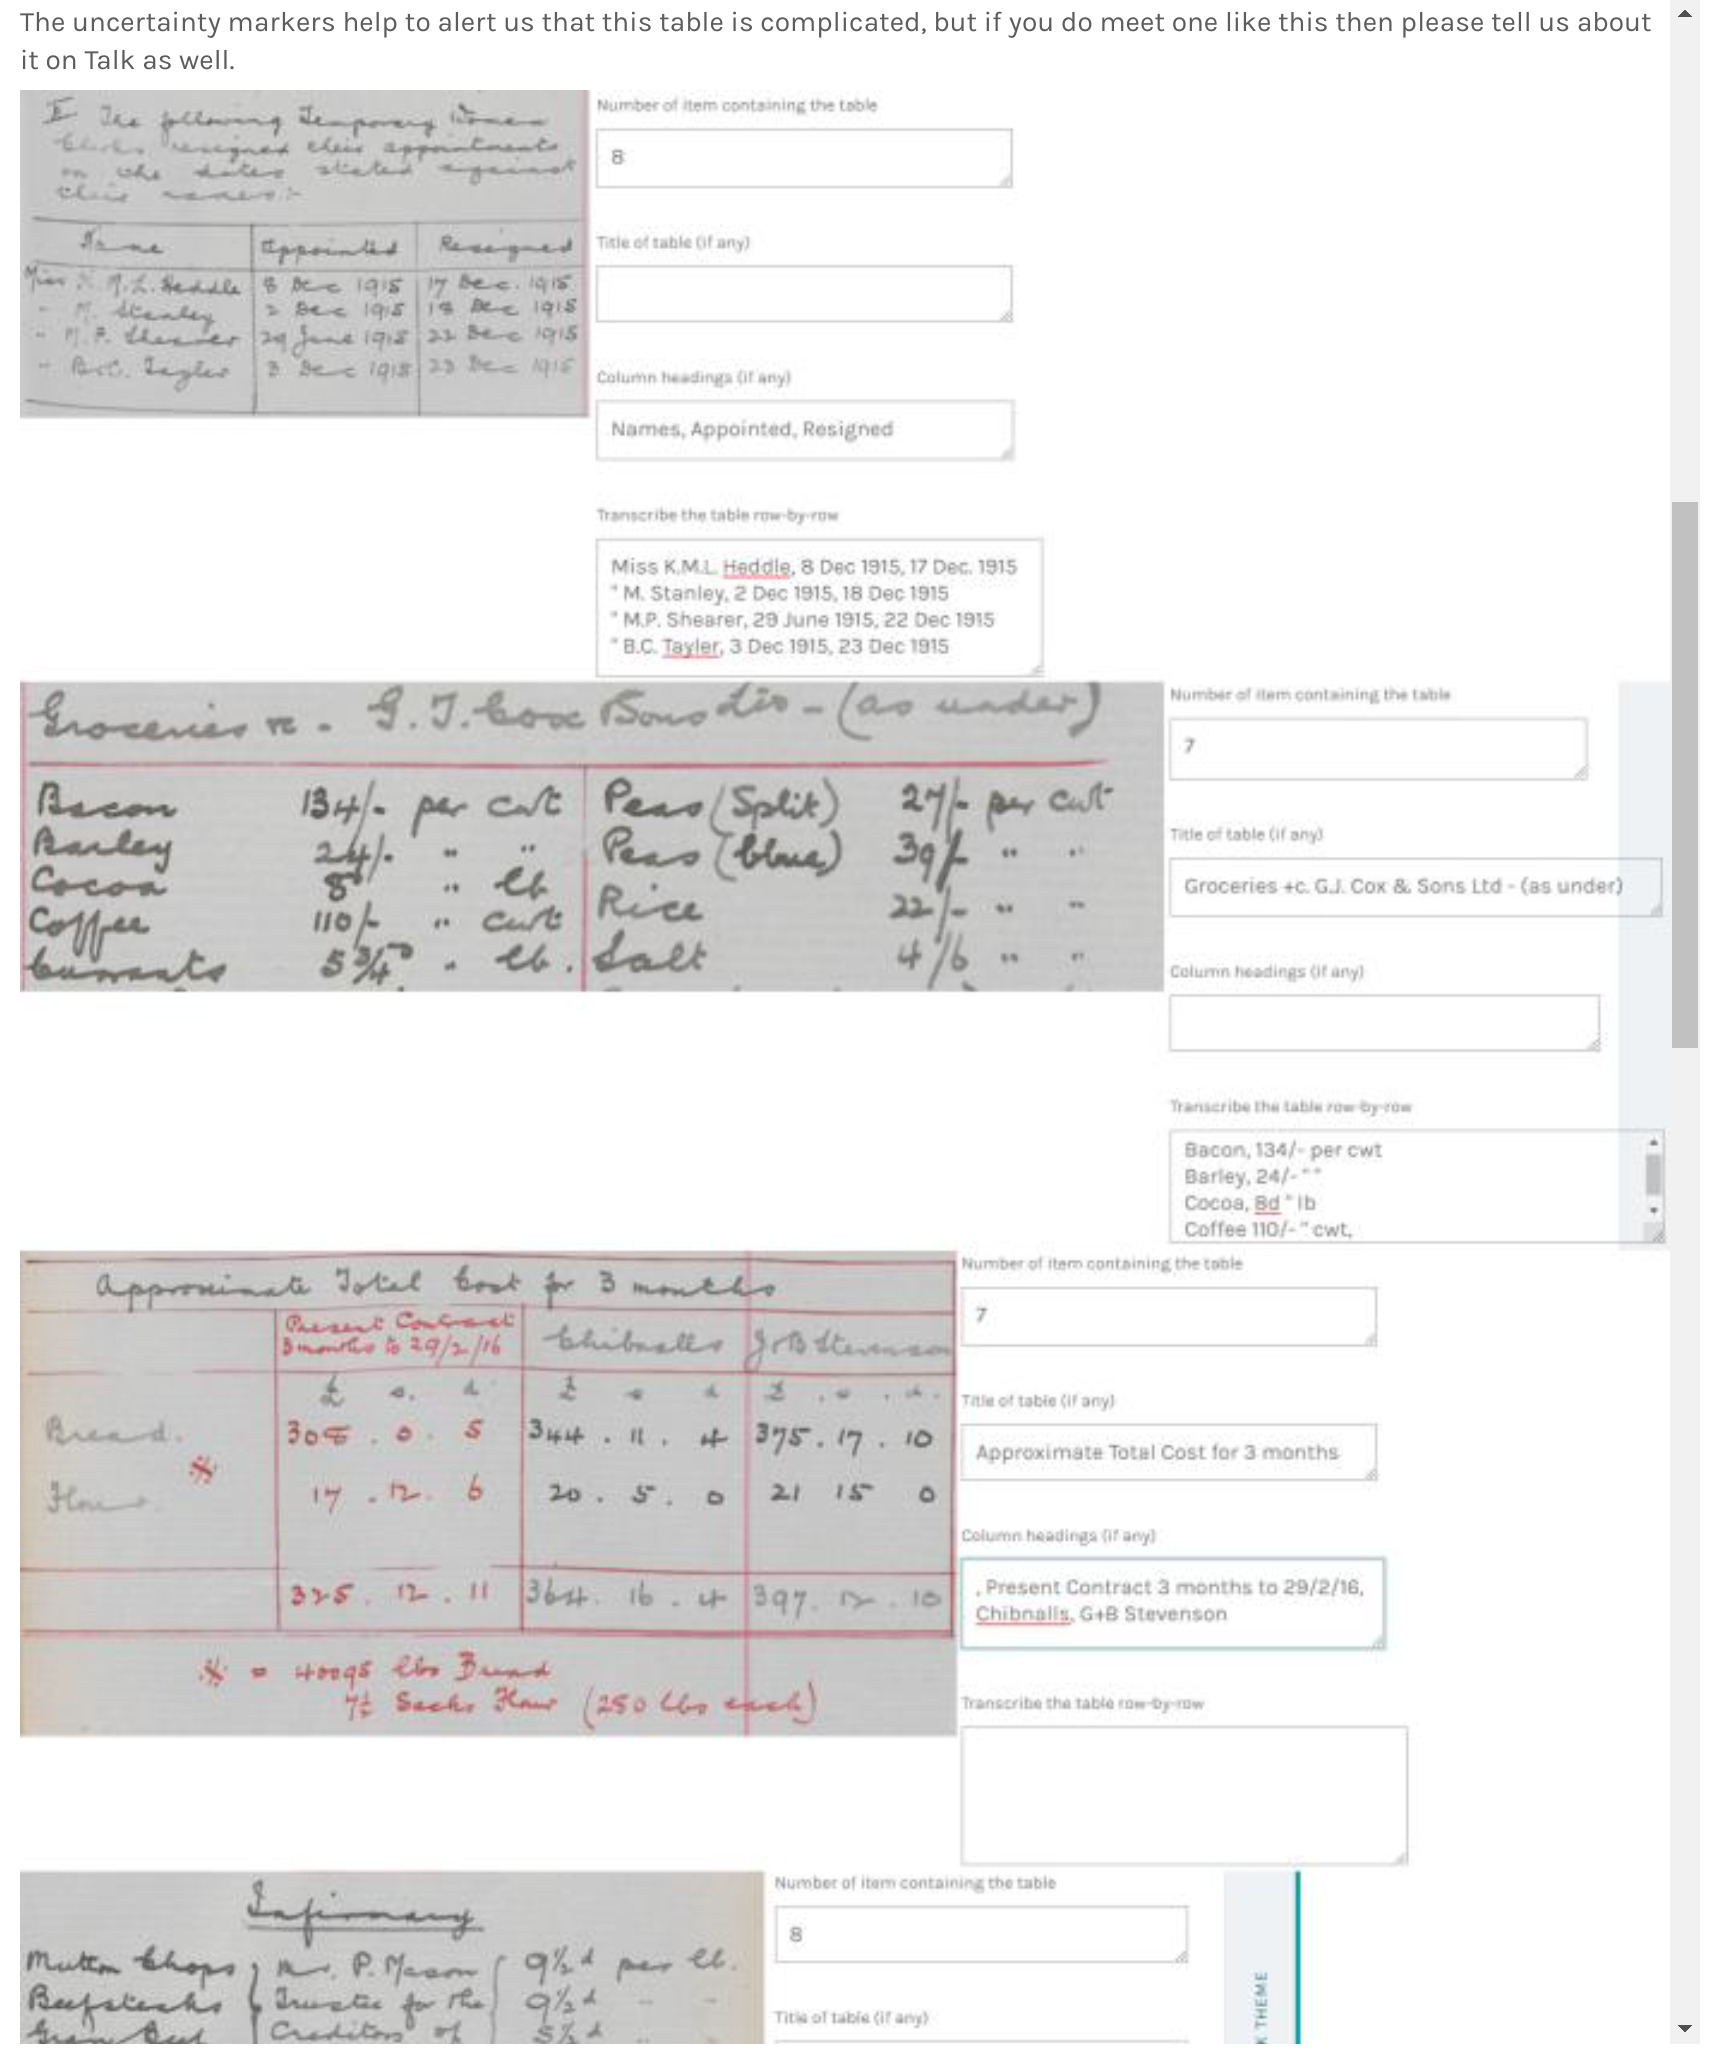 The uncertainty markers help to alert us that this table is complicated, but if you do meet one like this then please tell us about
it on Talk as well.
II The following Temporary Women
Clerks resigned their appointments
on the dates stated against
their names:-
Name Appointed Resigned
Miss K M.L. Heddle 8 Dec 1915 17 Dec. 1915
" M. Stanley 2 Dec 1915 18 Dec 1915
" M.P. Shearer 29 June 1915 22 Dec 1915
" B.C. Tayler 3 Dec 1915 23 Dec 1915
Number of item containing the table
8
Title of table (if any)
Column headings (if any)
Names, Appointed, Resigned
Transcribe the table row-by-row
Miss K.M.L. Heddle, 8 Dec 1915, 17 Dec. 1915
" M. Stanley, 2 Dec 1915, 18 Dec 1915
" M.P. Shearer, 29 June 1915, 22 Dec 1915
" B.C. Tayler, 3 Dec 1915, 23 Dec 1915
Groceries &c. G.J. Cox & Sons Ltd - (as under)
Bacon 134/- per cwt Peas (Split) 27/- per cwt
Barley 24/- " " Peas (blue) 39/- " "
Cocoa 8d " lb
Rice 22/- " "
Coffee 110/- " cwt
Currants 5 3/4d " lb. Salt 4/6 " "
Number of item containing the table
7
Title of table (if any)
Groceries +c. G.J. Cox & Sons Ltd - (as under)
Column headings (if any)
Transcribe the table row-by-row
Bacon, 134/- per cwt
Barley, 24/- " "
Cocoa, 8d " lb
Coffee 110/- " cwt,
Approximate Total Cost for 3 months
Present Contract
3 months to 29/2/16 Chibnalls G+B Stevenson
£ s. d. £ s d £ . s . d.
Bread. 308 . 0 . 5 344 . 11 . 4 375 . 17 . 10
※
Flour 17 . 12 . 6 20 . 5 . 0 21 15 0
325 . 12 . 11 364 . 16 . 4 397 . 12 . 10
※ = 40095 lbs Bread
7½ Sacks Flour (250 lbs each)
Number of item containing the table
7
Title of table (if any)
Approximate Total Cost for 3 months
Column headings (if any)
, Present Contract 3 months to 29/2/16,
Chibnalls, G+B Stevenson
Transcribe the table row-by-row
Infirmary
Mutton Chops Mr. P. Mason 9½d per lb.
Beefsteaks Trustee for the 9½d " "
Gravy Beef Creditors of 5½d " "
Number of item containing the table
8
Title of table (if any)
K THEME